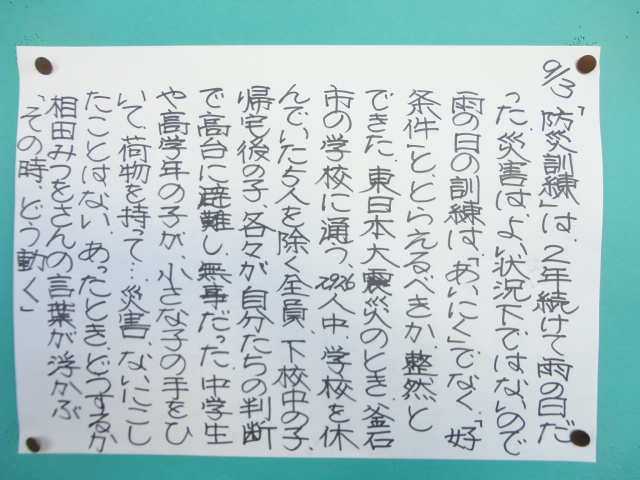 9/3「防災訓練」は、2年続けて雨の日だ
った。災害は、よい状況下ではないので
雨の日の訓練は「あいにく」でなく、「好
条件」と、とらえるべきか、整然と
できた。東日本大震災のとき、釜石
市の学校に通う、2926人中、学校を休
んでいた5人を除く全員、下校中の子、
帰宅後の子、各々が自分たちの判断
で高台に避難し、無事だった。中学生
や高学年の子が、小さな子の手をひ
いて、荷物を持って…災害、ないにこし
たことはない。あったとき、どうするか
相田みつをさんの言葉が浮かぶ
「その時、どう動く」